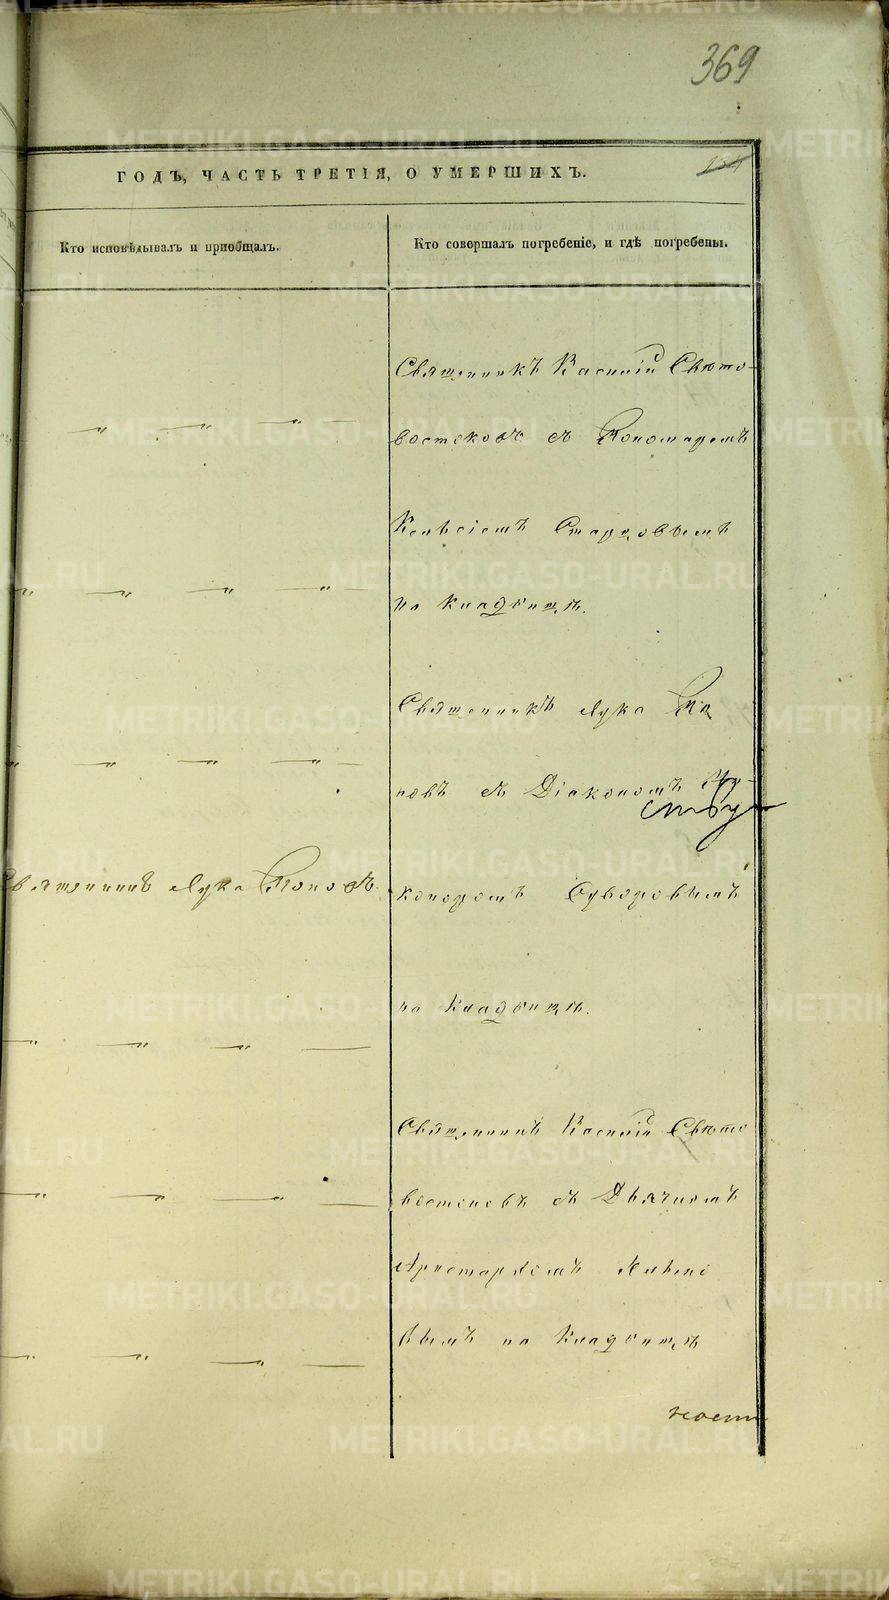 369
ГОДЪ, ЧАСТЬ ТРЕТІЯ, О УМЕРШИХЪ.
Кто исповѣдывалъ и пріобщалъ.
Кто совершалъ погребеніе, и гдѣ погребены.
Священникъ Василій Свѣто-
востоковъ съ Пономаремъ
Старцовымъ
на кладбищѣ.
Священникъ Лука По
повъ съ Діакономъ
Священникъ Лука Поповъ
Суворовымъ
на кладбищѣ.
Священникъ Василій Свѣто
востоковъ съ Дьячкомъ
Аристархомъ
вымъ на Кладбищѣ
METRIKI.GASO-URAL.RU